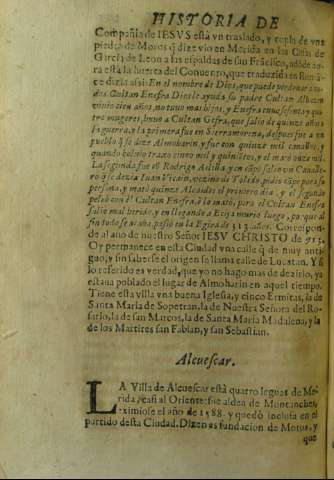 HISTORIA DE
Compañia de IESVS està vn traslado, y copia de vna
piedra de Moros q̃ dize vio en Merida en las casas de
Garcia de Leon a las espaldas de san Frãcisco, adõde aora
està la huerta del Conuento, que traduzida en Romãce
dezia assi: En el nombre de Dios, que puede perdonar a todos
Cultan Ensfra Dios le ayuda su padre Cultan
vinio cien años, no tuuo mas hijos, y Ensfra tuuo sesenta, y quatro
mugeres, huuo a Cultan Gifra, que salio de quinze años a
la guerra, y la primera fue en Sierramorena, despues fue a vn
pueblo q̃ se dize Almoharin, y fue con quinze mil cauallos, y
quando boluio traxo cinco mil y quinientos, y el matò onze mil.
La segunda fue el Rodrigo Arsilla, y en cãpo salio vn Cauallero
q̃ se dezia Iuan Vicain, vezino de Toledo, pidio cãpo por su
persona, y matò quinze Alcaides el primero dia, y el segundo
peleò con el Cultan Ensfra, y lo matò, pero el Cultan Ensfra
salio mal herido, y en llegando a Ecija murio luego, por que al
fin todo se acaba, passò en la Egira de 313 años. Corresponde
al año de nuestro Señor IESV CHRISTO de 915.
Oy permanece en esta Ciudad vna calle q̃ de muy antiguo,
y sin saberse el origen se llama calle de Lucatan. Y si
lo referido es verdad, que yo no hago mas de dezirlo, ya
estaua poblado el lugar de Almoharin en aquel tiempo.
Tiene esta villa vna buena Iglesia, y cinco Ermitas, la de
Santa Maria de Sopetran, la de Nuestra Señora del Rosario,
la de san Marcos, la de Santa Maria Madalena, y la
de los Martires san Fabian, y san Sebastian.
Alcuescar.
LA Villa de Alcuescar està quatro leguas de Merida,
casi al Oriente: fue aldea de Montanchez,
eximiose el año de 1588. y quedò inclusa en el
partido desta Ciudad. Dizen as fundacion de Moros, y
que